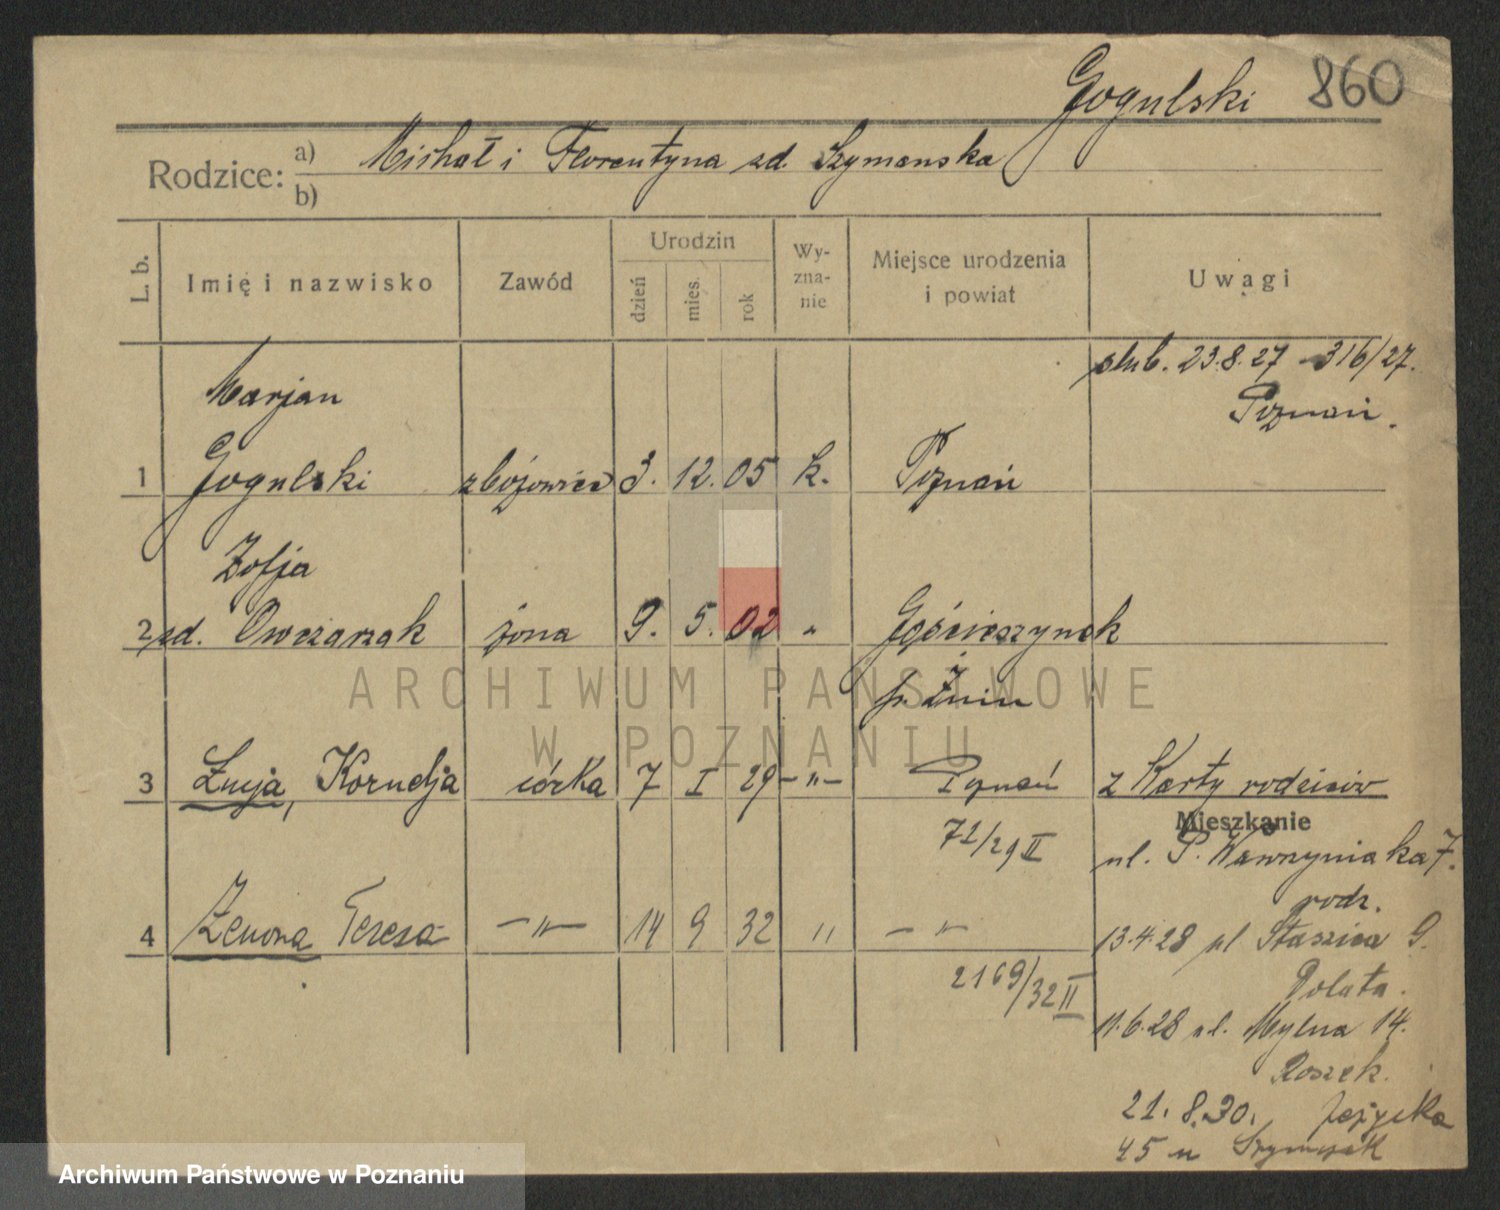 Gogulski 860
Rodzice: a) Michał i Florentyna zd. Szymańska
b)
L. b. Imię i nazwisko Zawód Urodzin dzień mies. rok Wy-zna-nie Miejsce urodzenia i powiat Uwagi
ślub. 23.8.27 - 316/27.
Marjan Poznań.
1 Gogulski 3. 12. 05 k. Poznań
Zofja
2 zd. Owczarzak żona 9. 5. 02 " Gościeszynek
p. Żnin
3 Łucja, Kornelja córka 7 I 29 -"- Poznań z Karty rodziców
Mieszkanie
72/29 II ul. P. Wawrzyniaka 7.
rodz.
4 Zenona Teresa -"- 14 9 32 " -"- 13.4.28 ul Staszica 9.
2169/32 II
11.6.28 ul. Mylna 14.
Roszek.
21. 8.30. Jeżycka
45 u Szymczak
ARCHIWUM PAŃSTWOWE
W POZNANIU
Archiwum Państwowe w Poznaniu